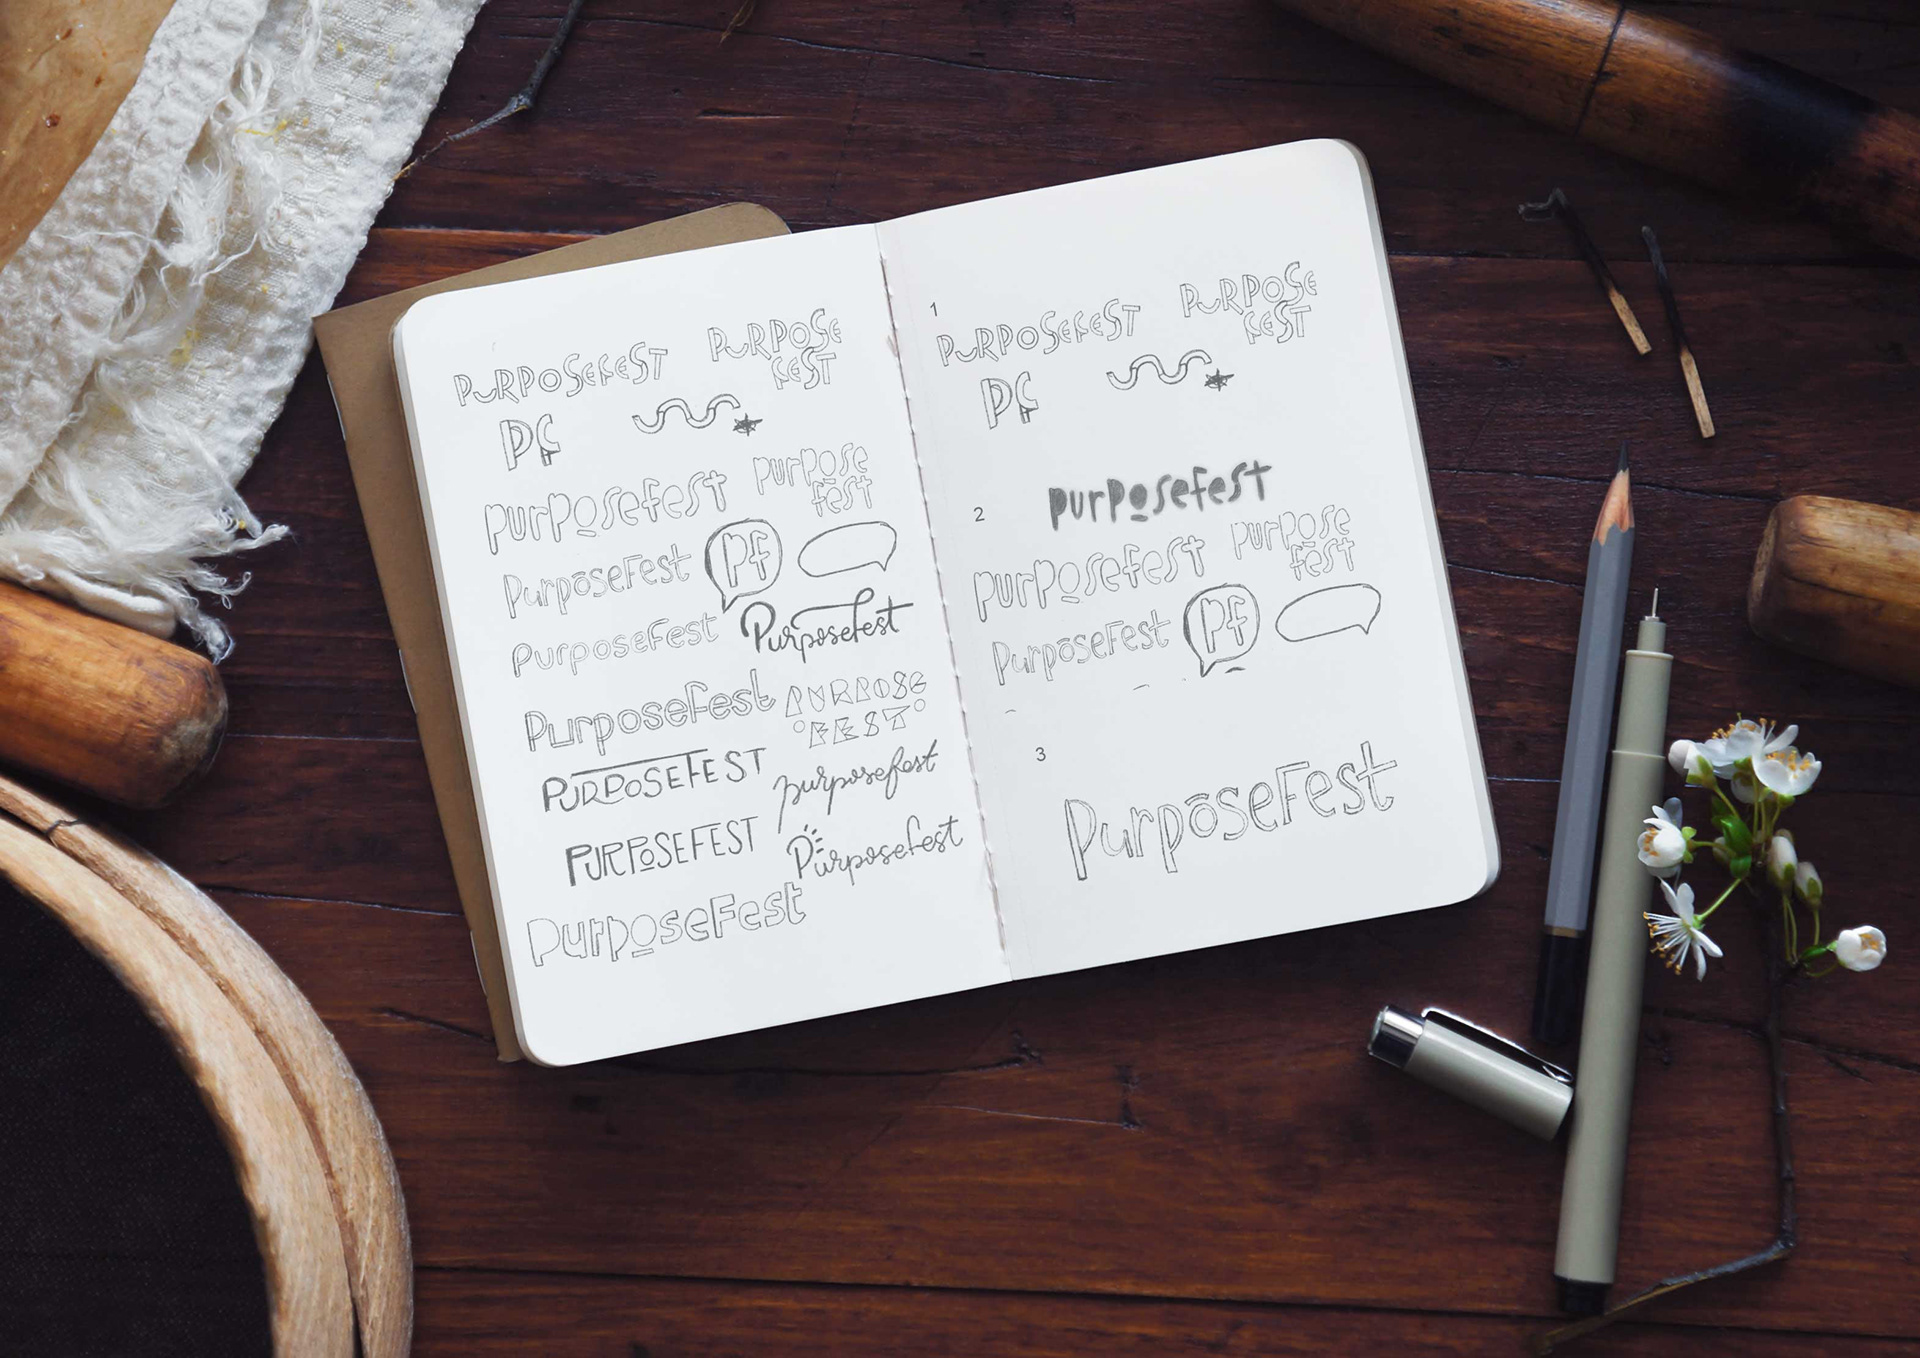 PURPOSEFEST
PURPOSE
FEST
PF
purposefest
purpose
fest
PurpōseFest
pf
PurposeFest
Purposefest
PurposeFest
PURPOSE
FEST
PURPOSEFEST
purposefest
PURPOSEFEST
Purposefest
PurposeFest
1
PURPOSEFEST
PURPOSE
FEST
PF
2
purposefest
purposefest
purpose
fest
PurpōseFest
pf
3
PurpōseFest